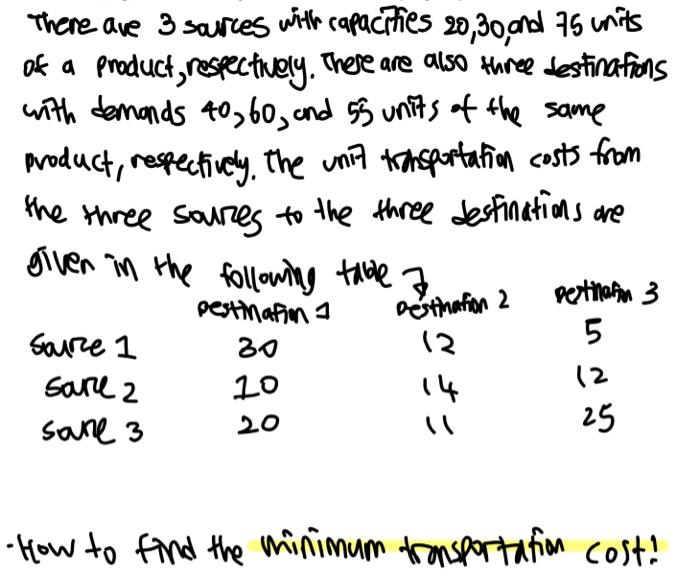 There are 3 sources with capacities 20,30,and 75 units
of a product,respectively. There are also three destinations
with demands 40,60,and 55 units of the same
product, respectively. The unit transportation costs from
the three sources to the three destinations are
given in the following table
Destination 1 Destination 2 Destination 3
Source 1 30 12 5
Source 2 10 14 12
Source 3 20 11 25
- How to find the minimum transportation cost!